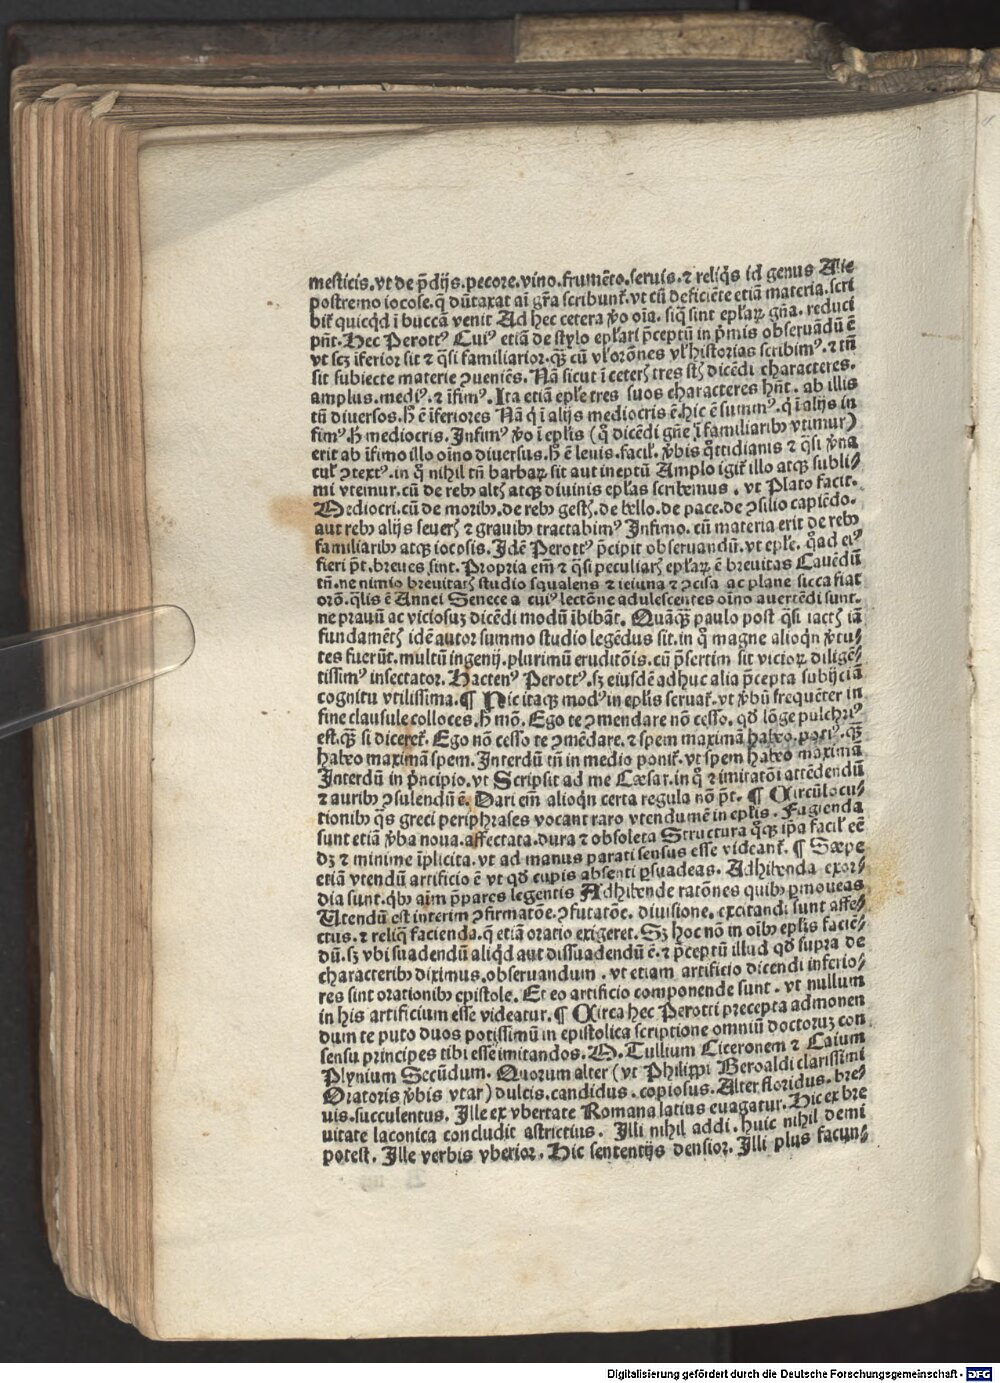 mesticis. vt de p̄dijs. pecore. vino. frumēto. seruis. ⁊ reliq̄s id genus Alie
postremo iocose. q̄ dūtaxat aī gr̄a scribunt̄. vt cū deficiēte etiā materia. scri
bit̄ quicq̄d ī buccā venit Ad hec cetera v̄o oīa. siq̄ sint ep̄laꝝ gn̄a. reduci
pn̄t. Hec Perottꝰ Cuiꝰ etiā de stylo ep̄lari p̄ceptū in p̄mis obseruādū ē
vt scꝫ īferior sit ⁊ q̄si familiarior. qꝫ cū vl̓ orōnes vl̓ historias scribimꝰ. ⁊ tn̄
sit subiecte materie ꝯueniēs. Nā sicut ī ceteꝶ tres sꝶ dicēdi characteres.
amplus. mediꝰ. ⁊ īfimꝰ. Ita etiā ep̄le tres suos characteres hn̄t. ab illis
tn̄ diuersos. h̄ ē īferiores Nā q̄ ī alijs mediocris ē. hic ē summꝰ. q̄ ī alijs in
fimꝰ. h̄ mediocris. Infimꝰ v̄o ī ep̄lis (q̄ dicēdi gn̄e ī familiaribꝫ vtimur)
erit ab īfimo illo oīno diuersus. h̄ ē leuis. facil̓. v̄bis q̊ttidianis ⁊ q̄si v̄na
cul̓ ꝯtextꝰ. in q̊ nihil tn̄ barbaꝝ sit aut ineptū Amplo igit̄ illo atqꝫ subli⸗
mi vtemur. cū de rebꝫ altꝶ atqꝫ diuinis ep̄las scribemus. vt Plato facit.
Mediocri. cū de moribꝫ. de rebꝫ gesꝶ. de bello. de pace. de ꝯsilio capiēdo.
aut rebꝫ alijs seueꝶ ⁊ grauibꝫ tractabimꝰ Infimo. cū materia erit de rebꝫ
familiaribꝫ atqꝫ iocosis. Idē Perottꝰ p̄cipit obseruandū. vt ep̄le. q̊ad eiꝰ
fieri p̄t. breues sint. Propria em̄ ⁊ q̄si peculiaꝶ ep̄laꝝ ē breuitas Cauēdū
tn̄. ne nimio breuitaꝶ studio squalens ⁊ ieiuna ⁊ ꝯcisa ac plane sicca fiat
orō. q̄lis ē Annei Senece a cuiꝰ lectōne adulescētes oīno auertēdi sunt.
ne prauū ac viciosuꝫ dicēdi modū ībibāt. Quāqꝫ paulo post q̄si iactꝶ iā
fundamētꝶ idē autor summo studio legēdus sit. in q̊ magne alioqn̄ v̄tu⸗
tes fuerūt. multū ingenij. plurimū eruditōis. cū p̄sertim sit vicioꝝ diligē⸗
tissimꝰ insectator. Hactenꝰ Perottꝰ. sꝫ eiusdē adhuc alia p̄cepta subijciā
cognitu vtilissima. ¶ Hic itaqꝫ modꝰ in ep̄lis seruat̄. vt v̄bū frequēter in
fine clausule colloces. h̄ mō. Ego te ꝯmendare nō cesso. qd̄ lōge pulchriꝰ
est. qꝫ si diceret̄. Ego nō cesso te ꝯmēdare. ⁊ spem maximā habeo. potiꝰ. qꝫ
habeo maximā spem. Interdū tn̄ in medio ponit̄. vt spem habeo maximā
Interdū in p̄ncipio. vt Scripsit ad me Cæsar. in q̊ ⁊ imitatōi attēdendū
⁊ auribꝫ ꝯsulendū ē. Dari em̄ alioqn̄ certa regula nō p̄t. ¶ Circūlocu⸗
tionibꝫ q̄s greci periphrases vocant raro vtendumē in ep̄lis. Fugienda
sunt etiā v̄ba noua. affectata. dura ⁊ obsoleta Structura q̊qꝫ ip̄a facil̓ eē
dꝫ ⁊ minime īplicita. vt ad manus parati sensus esse videant̄. ¶ Sæpe
etiā vtendū artificio ē vt qd̄ cupis absenti ꝑsuadeas. Adhibenda exor⸗
dia sunt. qͥbꝫ aīm p̄pares legentis Adhibende ratōnes quibꝫ ꝑmoueas
Utendū est interim ꝯfirmatōe. ꝯfutatōe. diuisione. excitandi sunt affe⸗
ctus. ⁊ reliq̄ facienda. q̄ etiā oratio exigeret. Sꝫ hoc nō in oībꝫ ep̄lis faciē⸗
dū. sꝫ vbi suadendū aliqd̄ aut dissuadendū ē. ⁊ p̄ceptū illud qd̄ supra de
characteribꝫ diximus. obseruandum. vt etiam artificio dicendi inferio⸗
res sint orationibꝫ epistole. Et eo artificio componende sunt. vt nullum
in his artificium esse videatur. ¶ Circa hec Perotti precepta admonen
dum te puto duos potissimū in epistolica scriptione omniū doctoruꝫ con
sensu principes tibi esse imitandos. M. Tullium Ciceronem ⁊ Caium
Plynium Secūdum. Quorum alter (vt Philippi Beroaldi clarissimi
Oratoris v̄bis vtar) dulcis. candidus. copiosus. Alter floridus. bre⸗
uis. succulentus. Ille ex vbertate Romana latius euagatur. Hic ex bre
uitate laconica concludit astrictius. Illi nihil addi. huic nihil demi
potest. Ille verbis vberior. Hic sententijs densior. Illi plus facun⸗
Digitalisierung gefördert durch die Deutsche Forschungsgemeinschaft - DFG